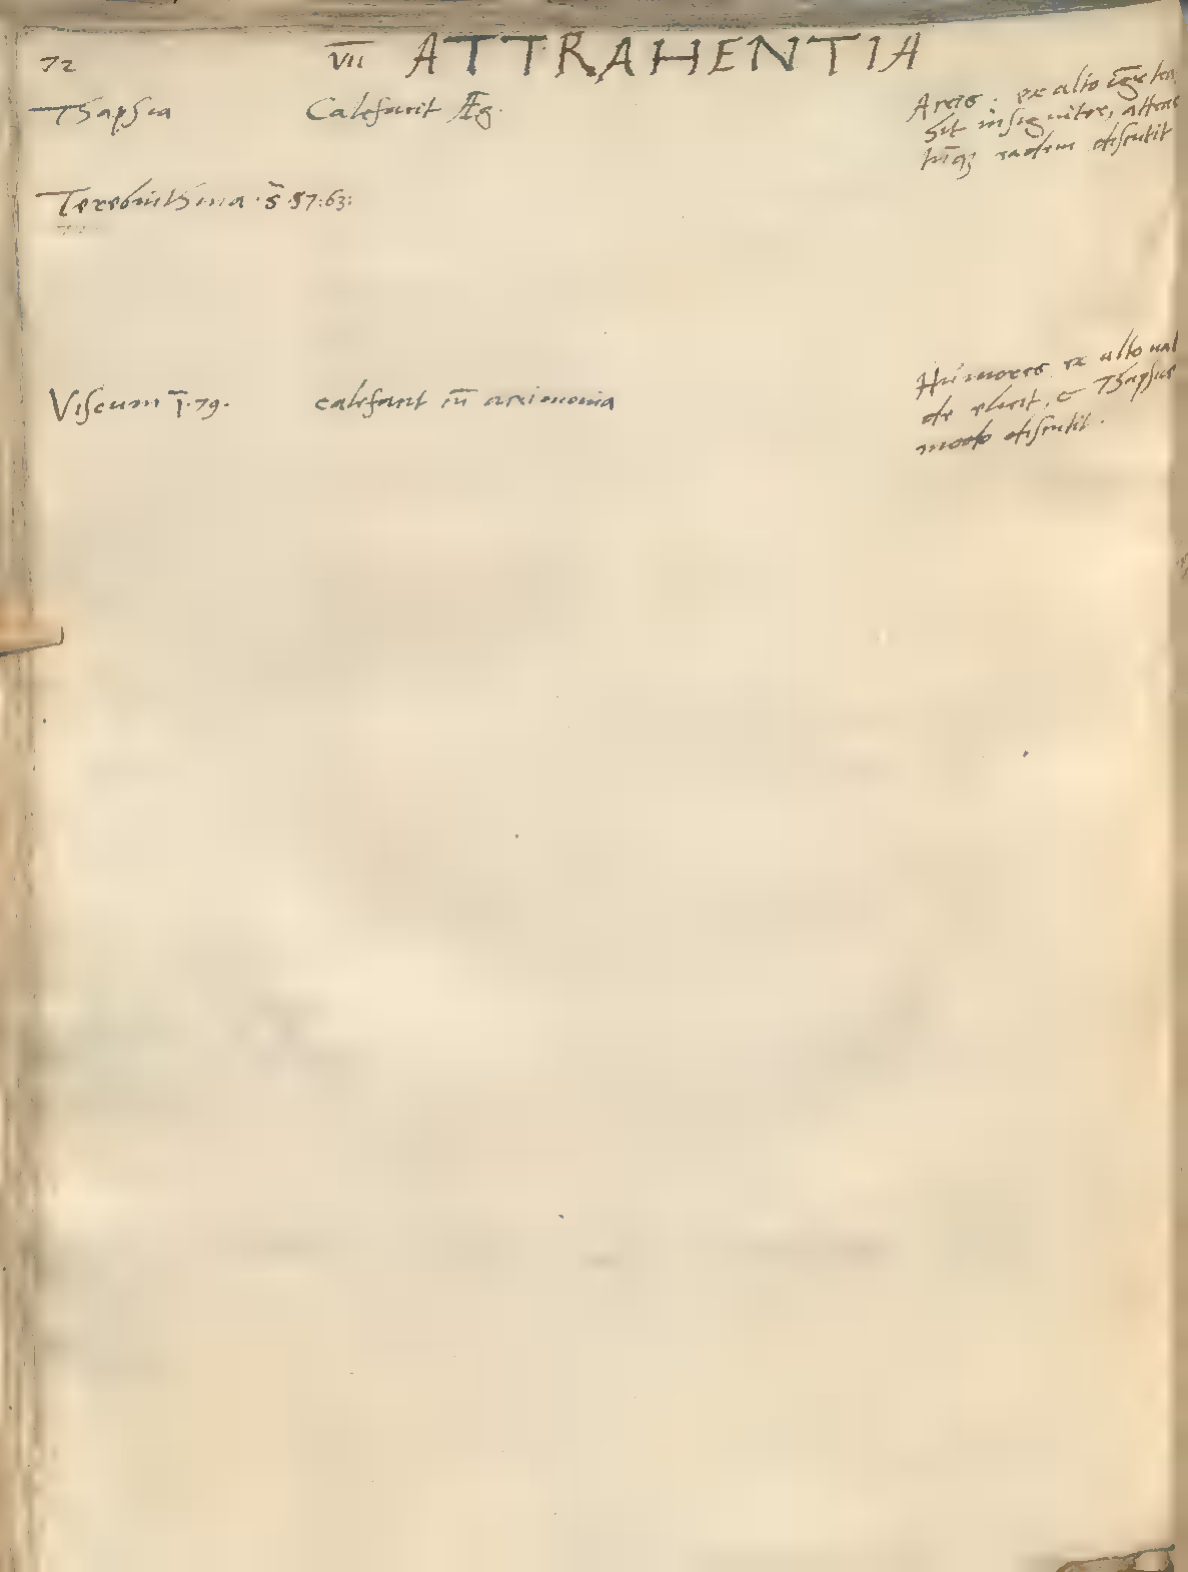 72 VII ATTRAHENTIA
Thapsia Calefacit Æg.
Acris: ex alto
sit insigniter, attrac
tūq; eadem discutit
Terebinthina · s̄ · 57:63:
Viscum ī · 79. calefacit cū acrimonia
Humores ex alto val
de elicit, Thapsiae
modo discutit.